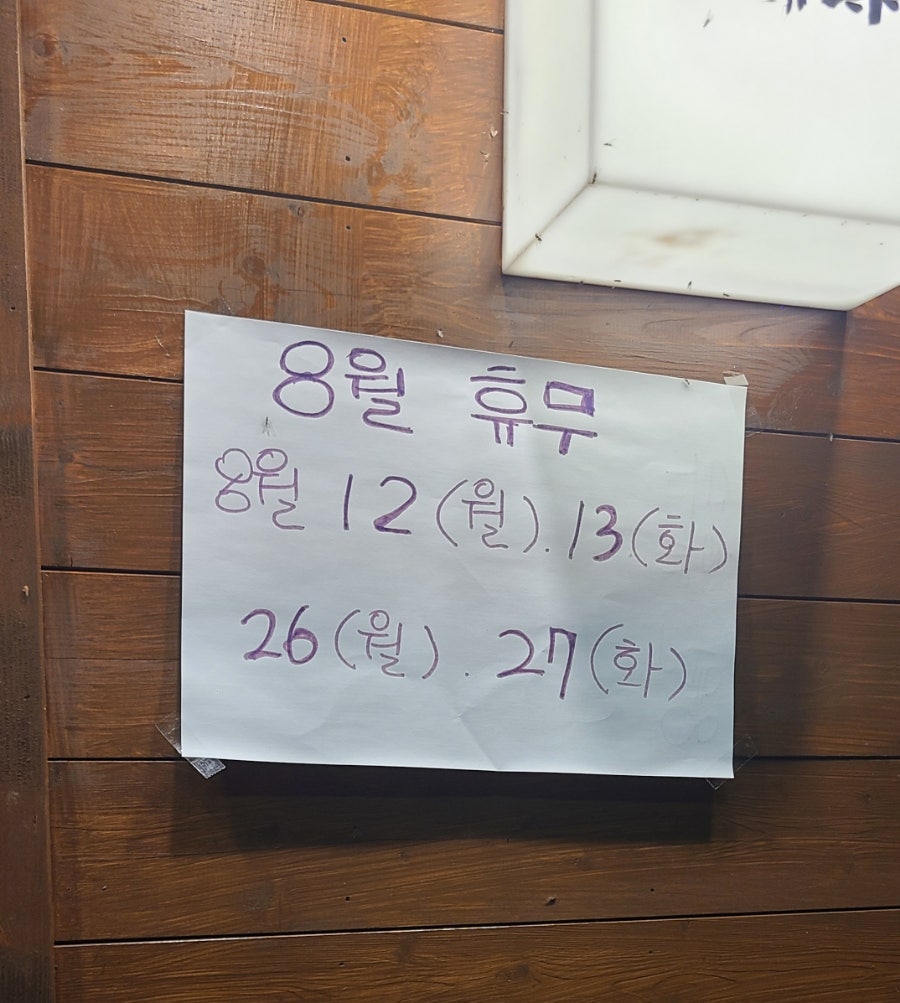 8월 휴무
8월 12(월). 13(화)
26(월). 27(화)